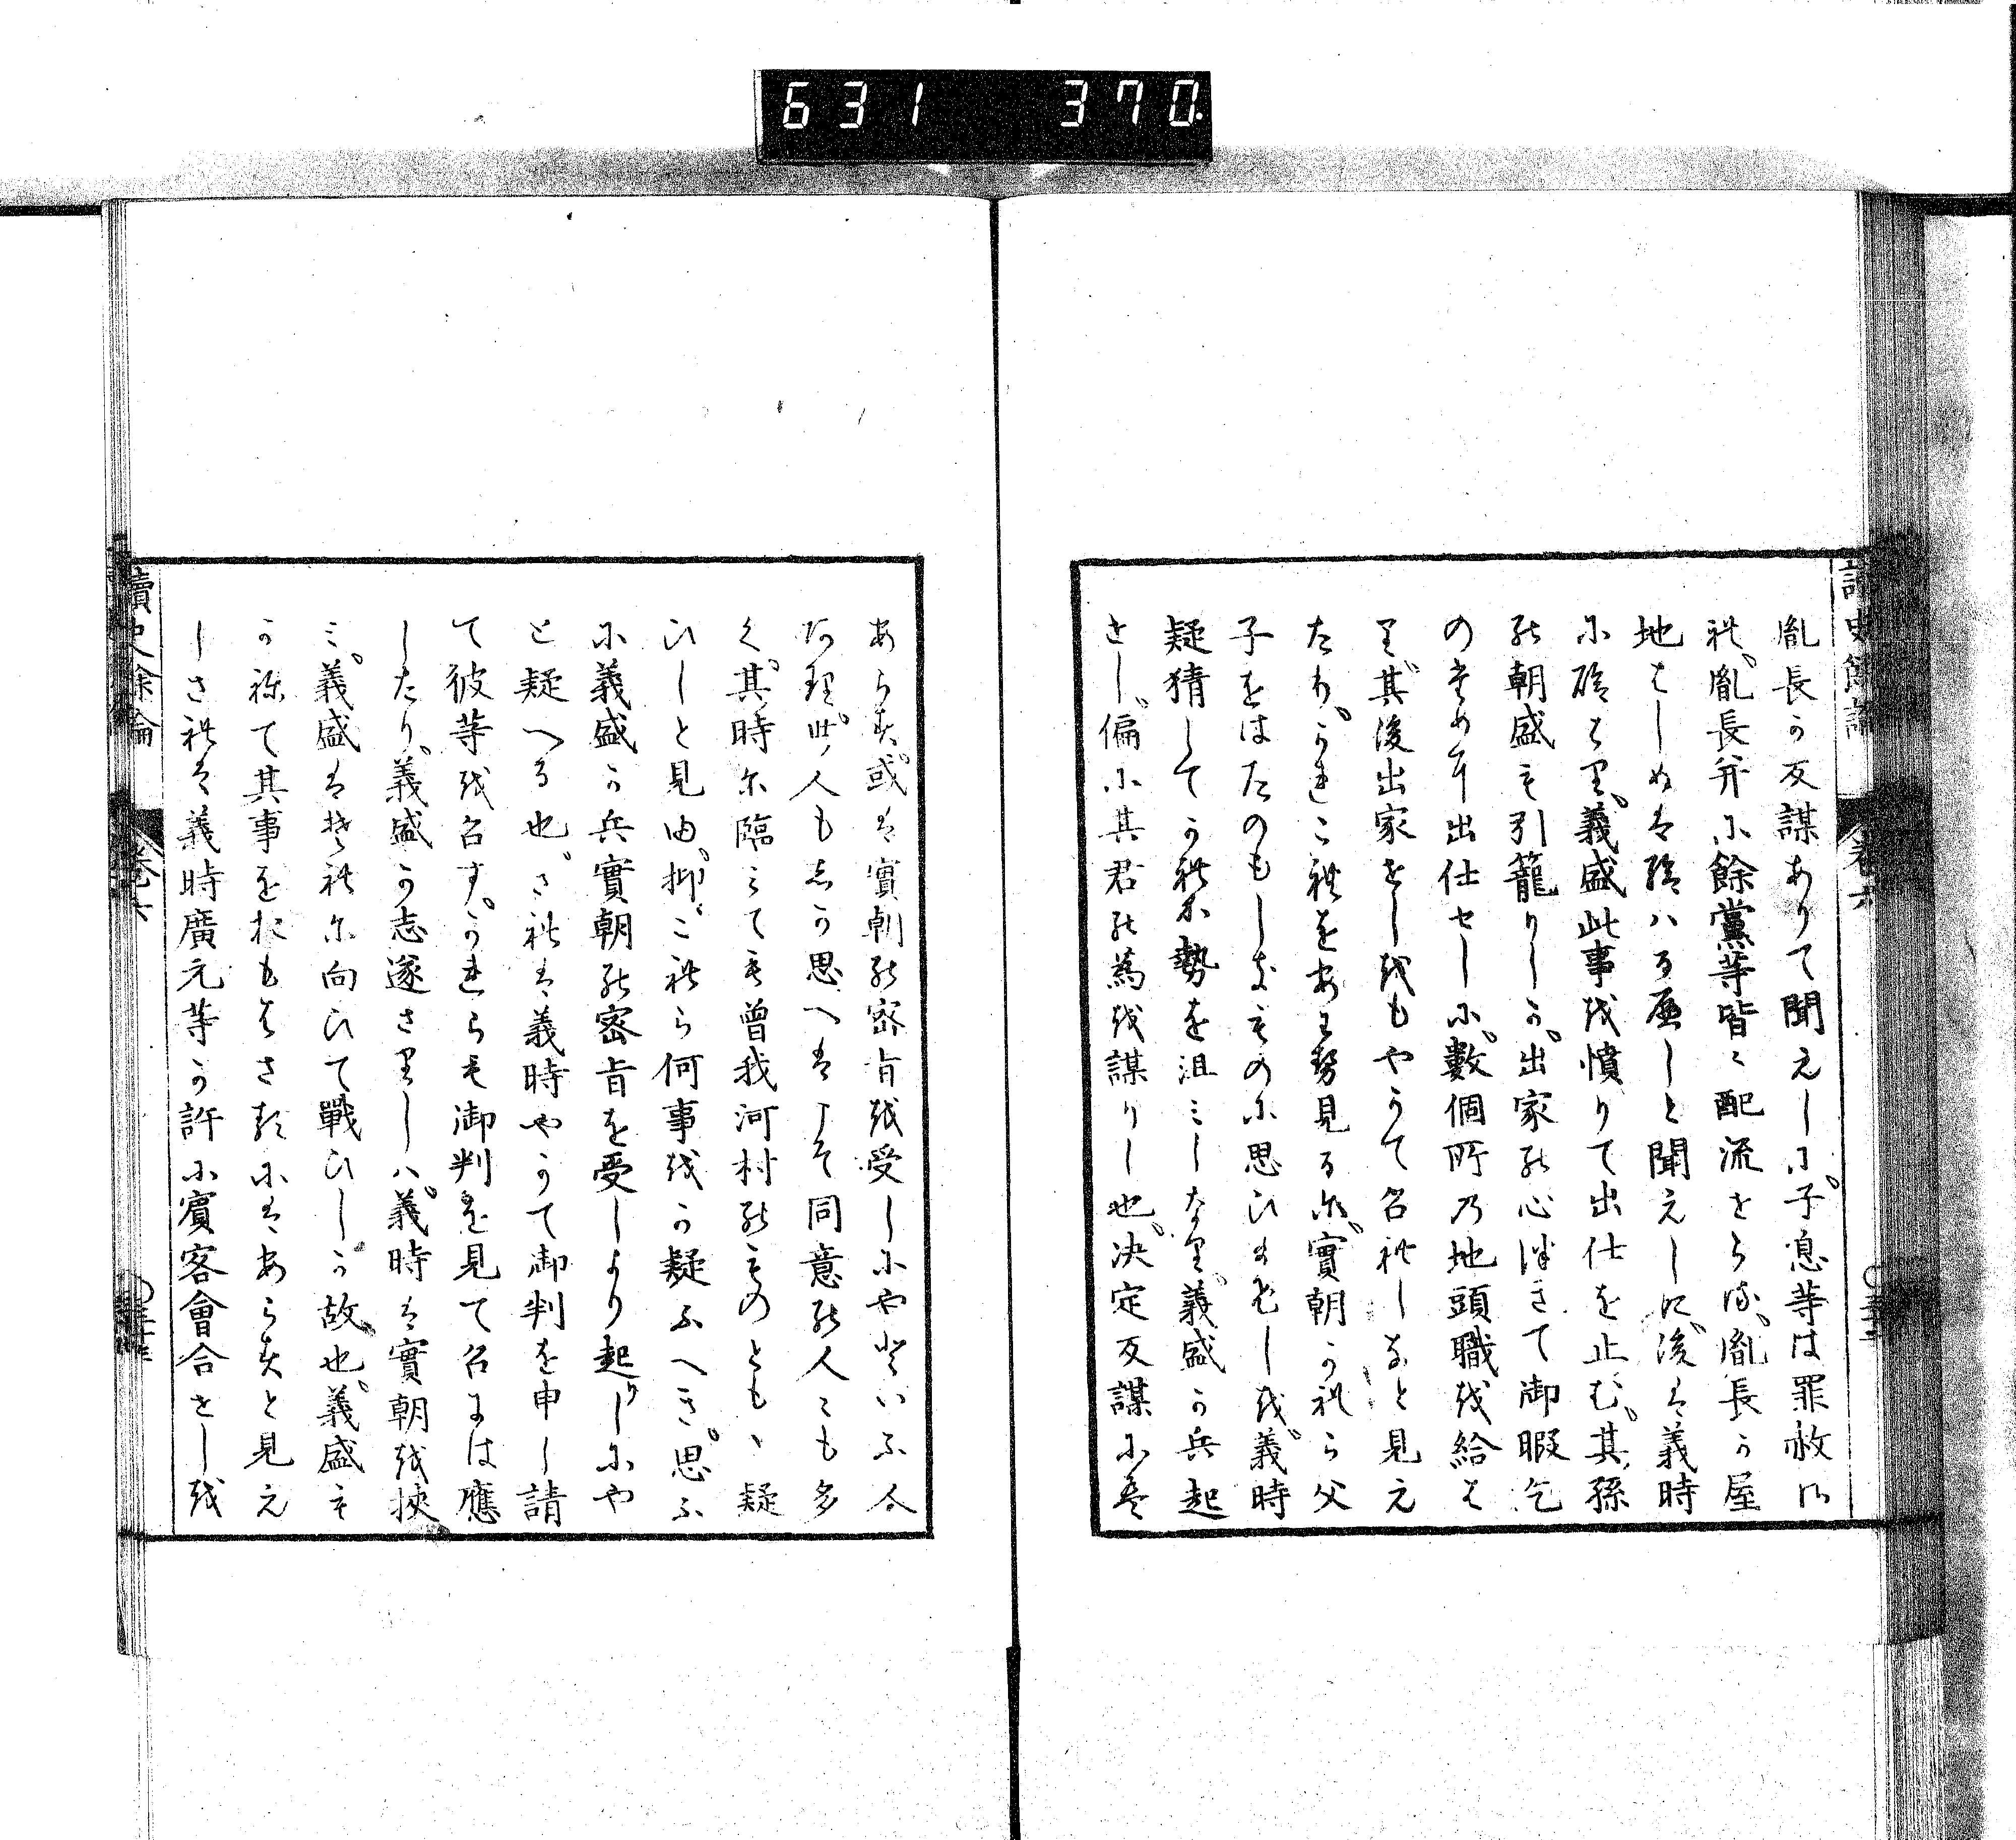 631 370
讀史餘論 卷六
胤長か反謀ありて聞えしに子息等は罪赦さ
れ胤長并に餘黨等皆〻配流せらる胤長か屋
地をしめは給はる應しと聞えしに後は義時
に給はり義盛此事を憤りて出仕を止む其孫
の朝盛も引籠りしか出家の心つきて御暇乞
のために出仕せしに數個所乃地頭職を給は
り其後出家せしをもやかて召れしなと見え
たりかれこれをあはせ見るに實朝かれら父
子をはたのもしきものに思ひませしを義時
疑猜してかれか勢を沮みしなり義盛か兵起
せし偏に其君の爲を謀りし也決定反謀には
あらす或は實朝の密旨を受しにやといふ人
あり此人もしか思へはこそ同意の人〻も多
く其時に臨みても曾我河村のものとも〻疑
ひしと見ゆ抑これら何事をか疑ふへき思ふ
に義盛か兵實朝の密旨を受しより起りしにや
と疑へる也されは義時やかて御判を申し請
て彼等を召すかれらも御判を見て召には應
したり義盛か志遂さりしハ義時は實朝を挾
み義盛はそれに向ひて戰ひしか故也義盛も
かねて其事をおもはさるにはあらすと見え
しされは義時廣元等か許に賓客會合せしを
讀史餘論 卷六